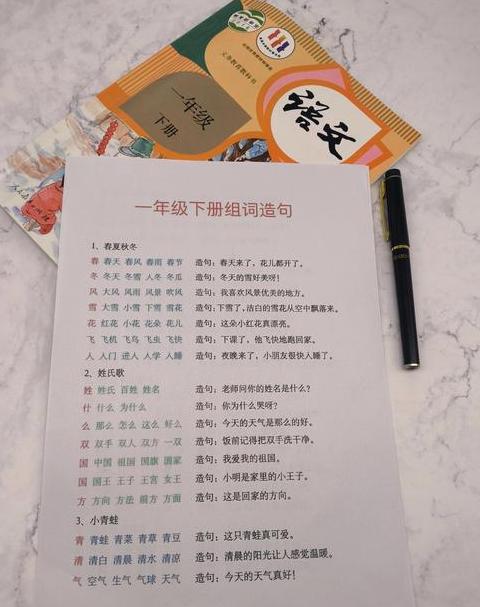 义务教育教科书
语文
一年级
下册
一年级下册组词造句
1、春夏秋冬
春 春天 春风 春雨 春节 造句：春天来了，花儿都开了。
冬 冬天 冬雪 人冬 冬瓜 造句：冬天的雪好美呀！
风 大风 风雨 风景 吹风 造句：我喜欢风景优美的地方。
雪 大雪 小雪 下雪 雪花 造句：下雪了，洁白的雪花从空中飘落来。
花 红花 小花 花朵 花儿 造句：这朵小红花真漂亮。
飞 飞机 飞鸟 飞虫 飞快 造句：下课了，他飞快地跑回家。
人 人门 进人 人学 人睡 造句：夜晚来了，小朋友很快人睡了。
2、姓氏歌
姓 姓氏 百姓 姓名 造句：老师问你的姓名是什么？
什 什么 为什么 造句：你为什么哭呀？
么 那么 怎么 这么 好么 造句：今天的天气是那么的好。
双 双手 双人 双方 一双 造句：饭前记得把双手洗干净。
国 中国 祖国 国旗 国家 造句：我爱我的祖国。
国 国王 王子 王宫 女王 造句：小明是家里的小王子。
方 方向 方法 前方 方面 造句：这是回家的方向。
3、小青蛙
青 青蛙 青菜 青草 青豆 造句：这只青蛙真可爱。
清 清白 清晨 清水 清凉 造句：清晨的阳光让人感觉温暖。
气 空气 生气 气球 天气 造句：今天的天气真好！